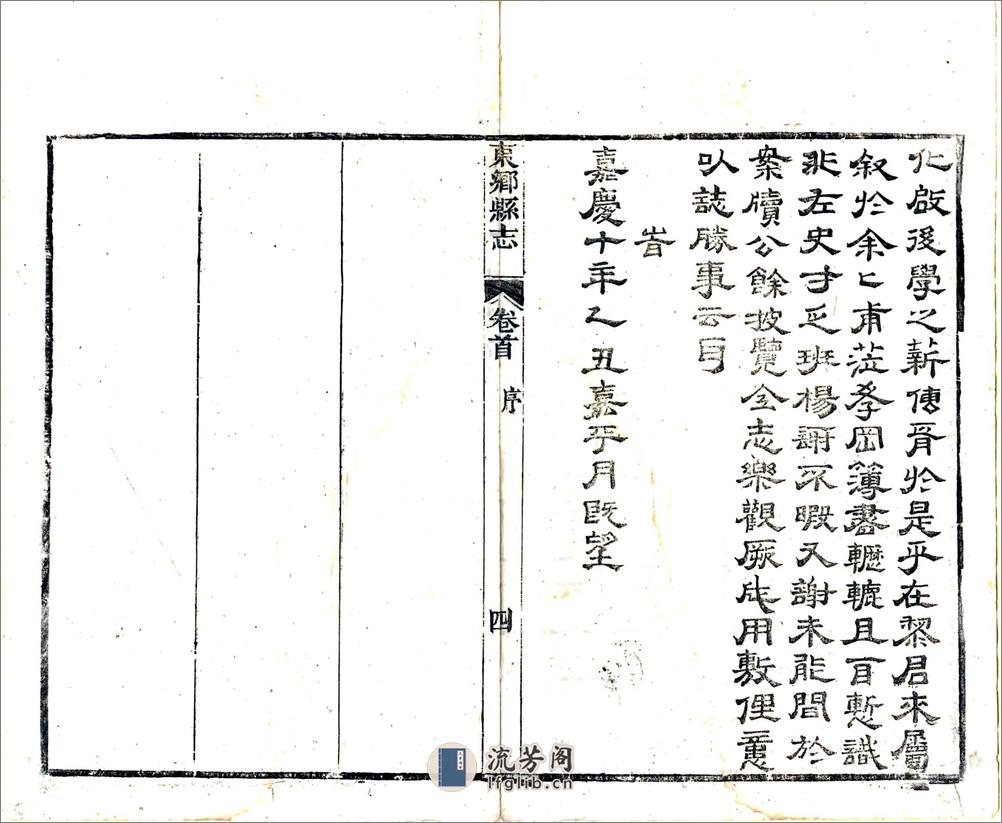 化啟後學之薪傳胥於是乎在黎君來屬
叙於余匕甫涖孝岡簿書轣轆且自慙識
非左史才乏班楊謝不暇又謝未能間於
案牘公餘披覽全志樂觀厥成用敷俚意
以誌勝事云耳
旹
嘉慶十年乙丑嘉平月既望
東鄉縣志
卷首
序
四
流芳阁
lfglib.cn